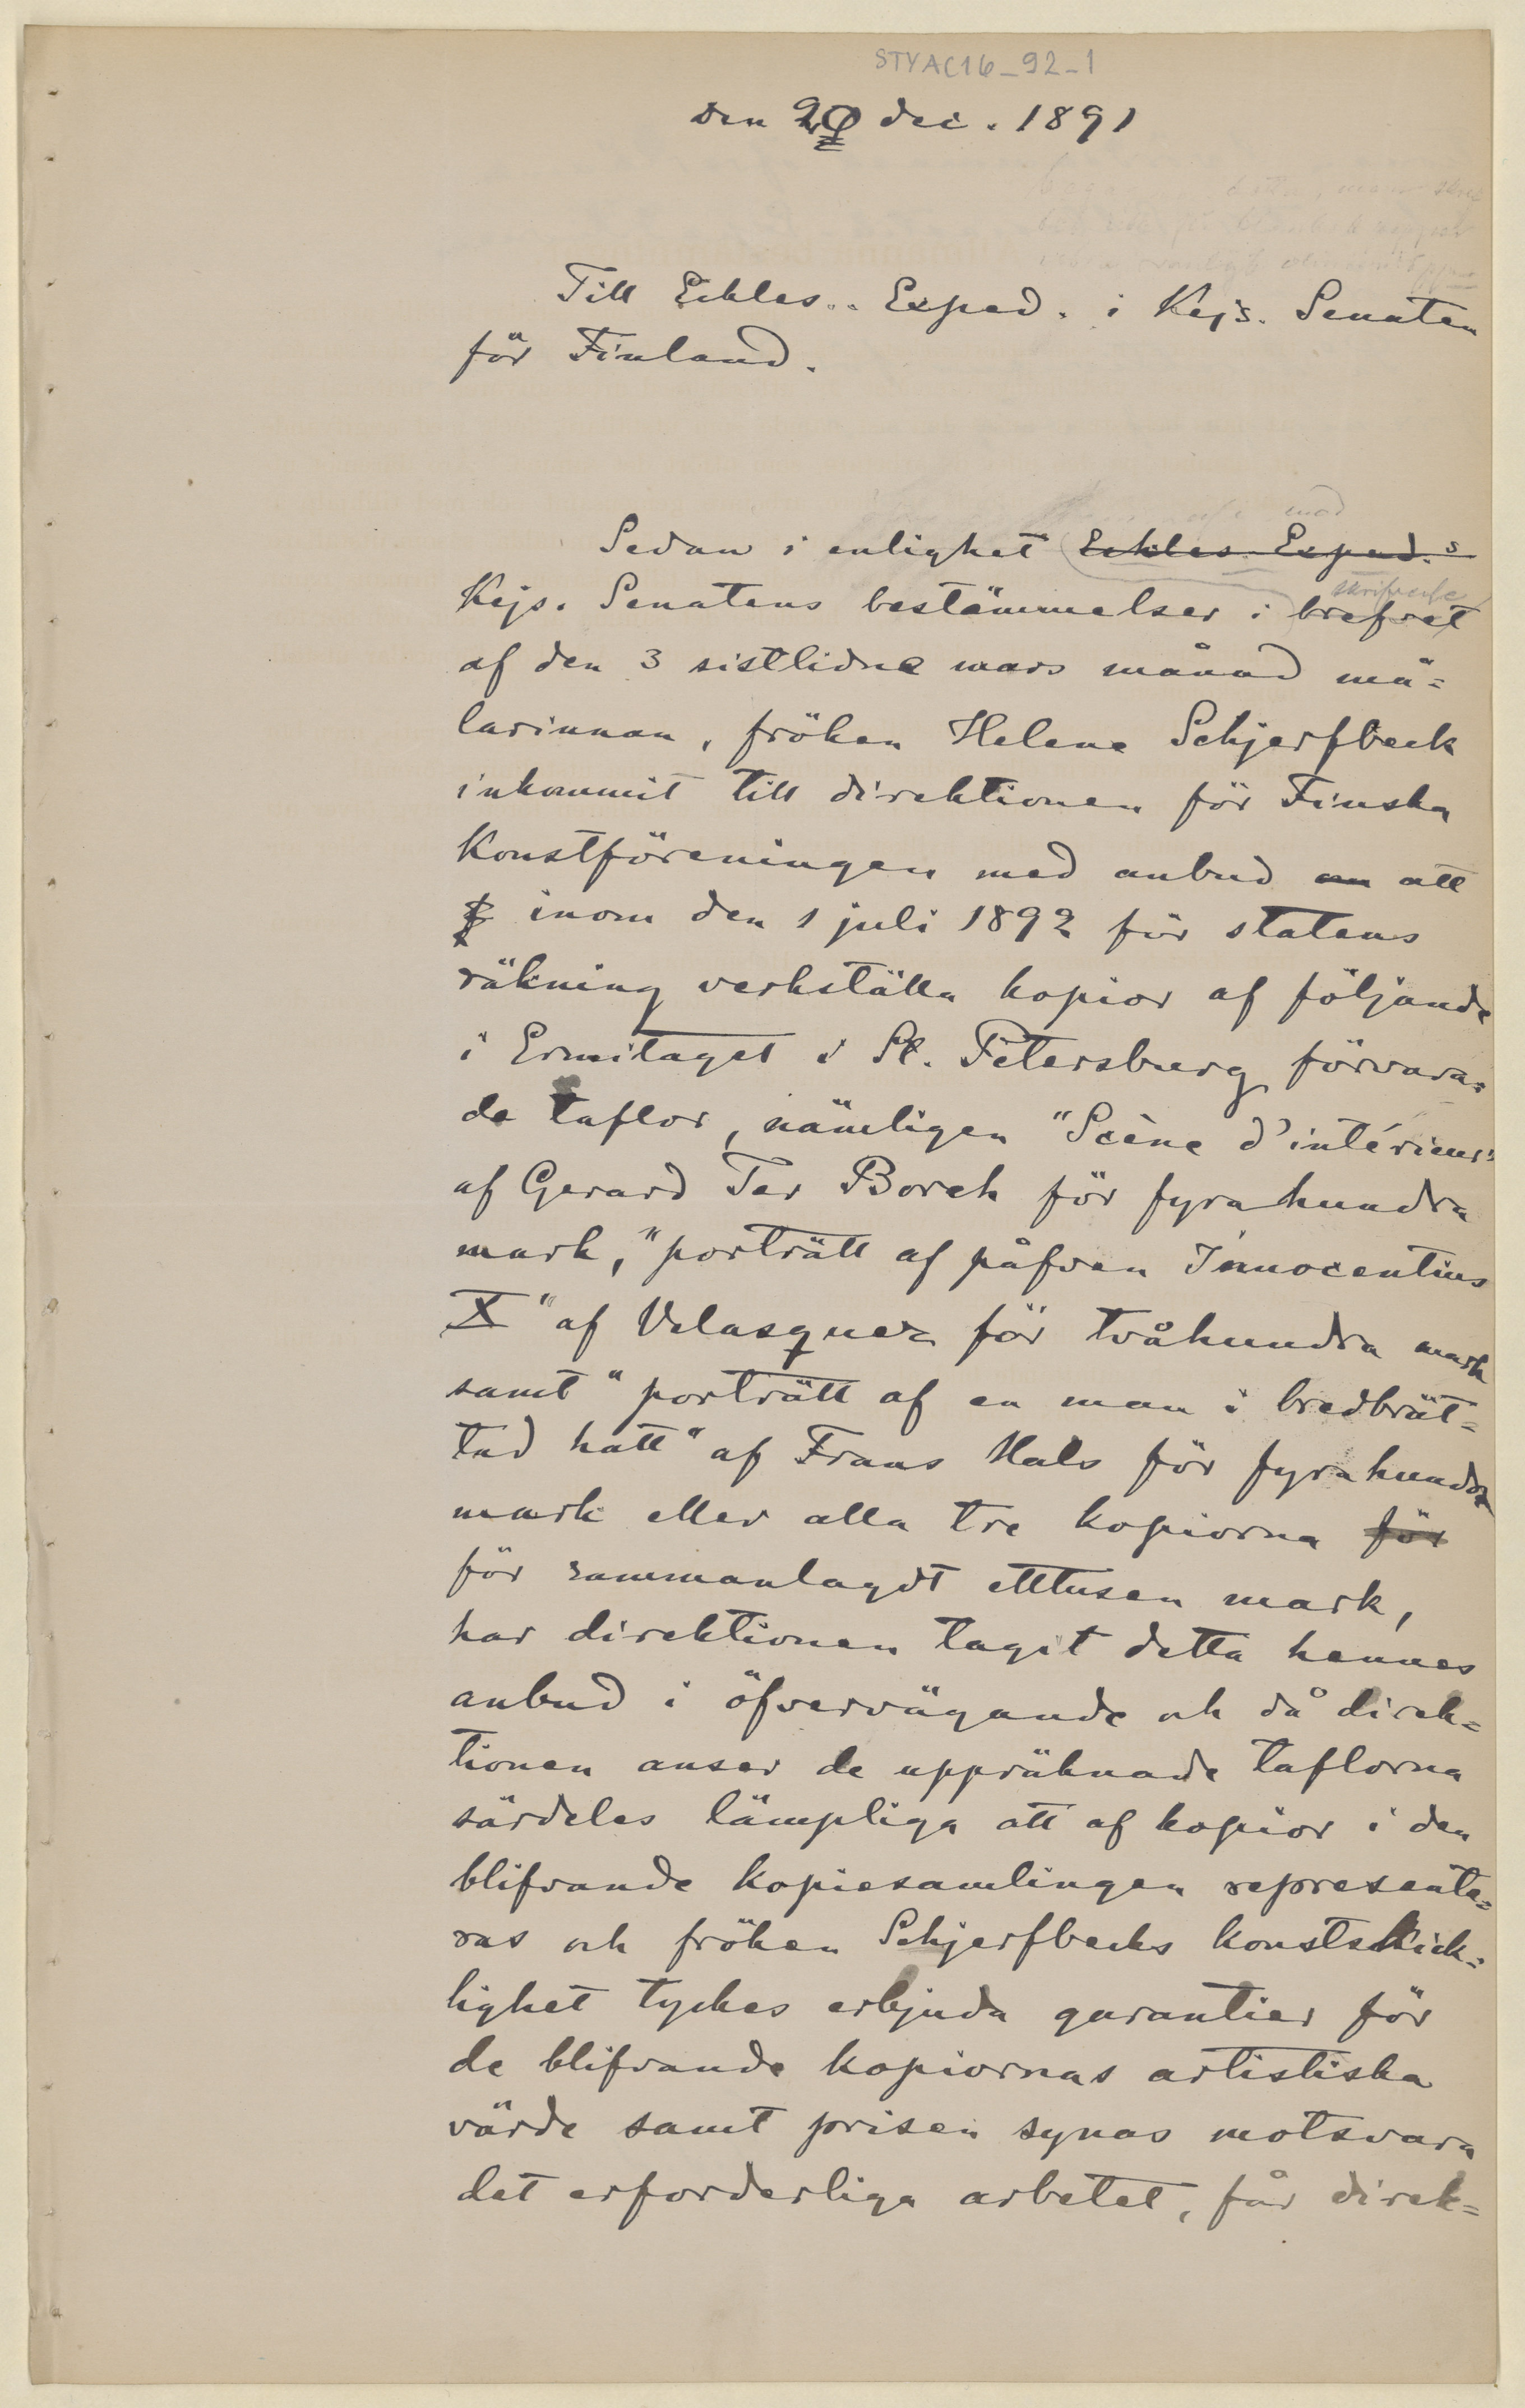 STYAC16_92_1
den 29 dec. 1891
Till Eckles.. Exped. i Kejs. Senaten
för Finland.
med
Sedan i enlighet Eckles Exped.s
skrifvelse
Kejs. Senatens bestämmelser i brefvet
af den 3 sistlidne mars månad må=
larinnan, fröken Helene Schjerfbeck
inkommit till direktionen för Finska
Konstföreningen med anbud om att
inom den 1 juli 1892 för statens
räkning verkställa kopior af följande
i Ermitaget i St. Petersburg förvara=
de taflor, nämligen "Scène d'intérieur"
af Gerard Ter Borch för fyrahundra
mark, "porträtt af påfven Innocentius
X" af Velasquez för tvåhundra mark
samt "porträtt af en man i bredbrät=
tad hatt" af Frans Hals för fyrahundra
mark eller alla tre kopiorna för
för sammanlagdt ettusen mark,
har direktionen tagit detta hennes
anbud i öfvervägande och då direk=
tionen anser de uppräknade taflorna
särdeles lämpliga att af kopior i den
blifvande kopiesamlingen representa=
ras och fröken Schjerfbecks konstskick=
lighet tyckes erbjuda garantier för
de blifvande kopiornas artistiska
värde samt prisen synas motsvara
det erforderliga arbetet, får direk=